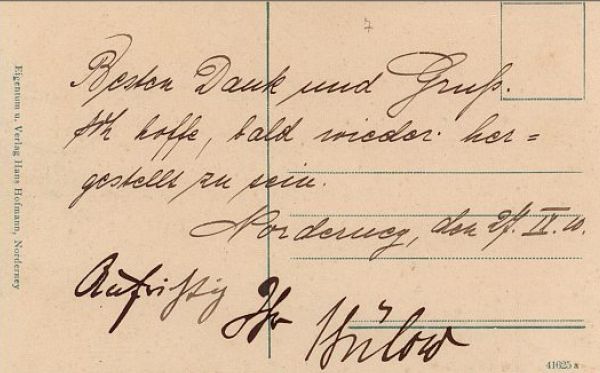 Besten Dank und Gruß.
Ich hoffe, bald wieder her=
gestellt zu sein.
Norderney, den 27. IX. 10.
Aufrichtig
Ihr Bülow
Eigentum u. Verlag Hans Hofmann, Norderney
41625